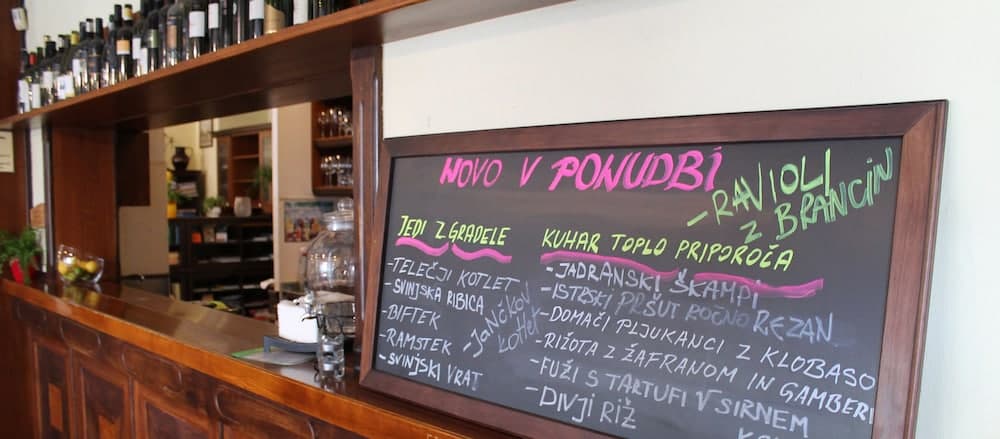 NOVO V PONUDBI
- RAVIOLI
Z BRANCIN
JEDI Z GRADELE
- TELEČJI KOTLET
- SVINJSKA RIBICA
- BIFTEK
- RAMSTEK
- SVINJSKI VRAT
- JANČKOV
kotlet
KUHAR TOPLO PRIPOROČA
- JADRANSKI ŠKAMPI
- ISTRSKI PRŠUT ROČNO REZAN
- DOMAČI PLJUKANCI Z KLOBASO
- RIŽOTA Z ŽAFRANOM IN GAMBERI
- FUŽI S TARTUFI V SIRNEM
- DIVJI RIŽ